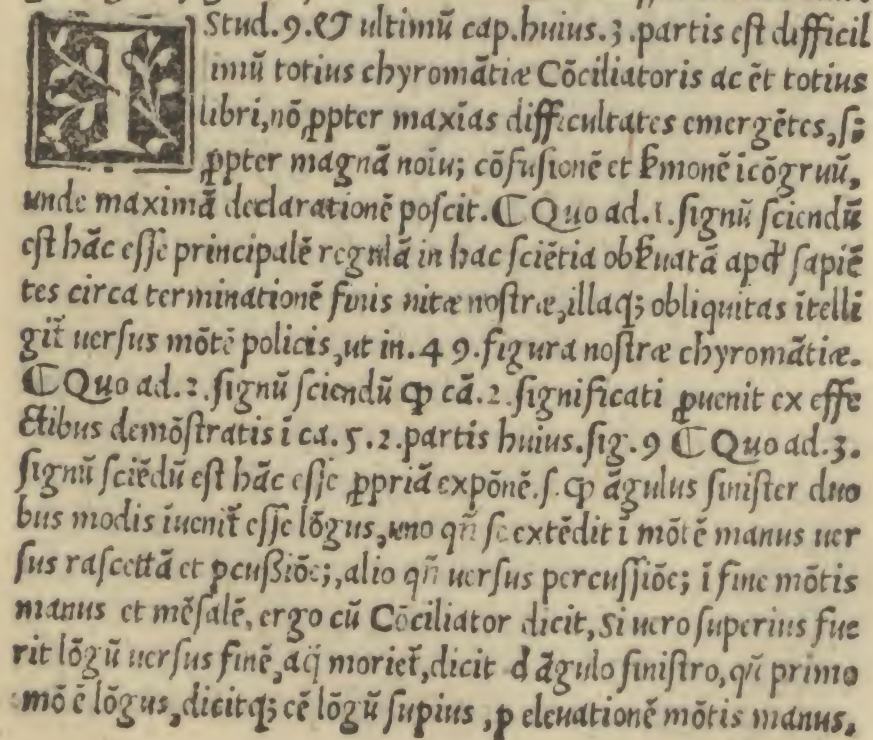 IStud.9.& ultimũ cap.huius.3.partis est difficil
imũ totius chyromãtiæ Cõciliatoris ac ẽt totius
libri,nõ ꝓpter maxĩas difficultates emergẽtes,s;
ꝓpter magnã noiu; cõfusionẽ et ẞmonẽ icõgruũ,
unde maximã declarationẽ poscit. ⁋ Quo ad.1.signũ sciendũ
est hãc esse principalẽ regulã in hac sciẽtia obẞuatã apd' sapiẽ
tes circa terminationẽ finis uitæ nostræ,illaq; obliquitas ĩtelli
git̃ uersus mõtẽ policis,ut in.49.figura nostræ chyromãtiæ.
⁋ Quo ad.2.signũ sciendũ ꝙ cã.2.significati ꝓuenit ex effe
ctibus demõstratis ĩ ca.5.2.partis huius.fig.9 ⁋ Quo ad.3.
signũ sciẽdũ est hãc esse ꝓpriã expõnẽ.s.ꝙ ãgulus sinister duo
bus modis ĩuenit̃ esse lõgus,uno qñ se extẽdit ĩ mõtẽ manus uer
sus rascettã et ꝑcußiõe;,alio qñ uersus percussiõe; ĩ fine mõtis
manus et mẽsalẽ, ergo cũ Cõciliator dicit, Si uero superius fue
rit lõgũ uersus finẽ,aq̃ moriet̃,dicit d' ãgulo sinistro,qñ primo
mõ ẽ lõgus,dicitq; eẽ lõgũ supius,ꝑ eleuationẽ mõtis manus,